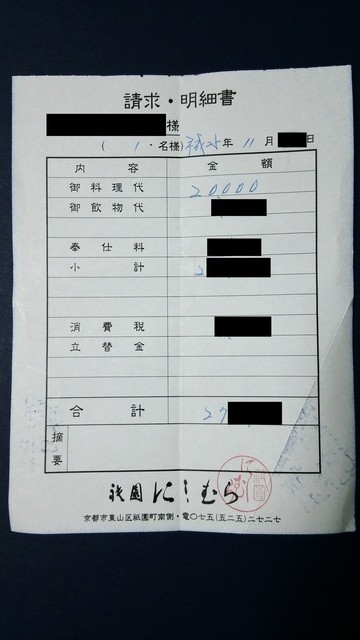 請求・明細書
様
( 1・名様) 平成25年 11月 日
内容 金額
御料理代 20000
御飲物代
奉仕料
小計 2
消費税
立替金
合計 27
摘要
祇園 にしむら
京都市東山区祇園町南側・電〇七五(五二五)二七二七